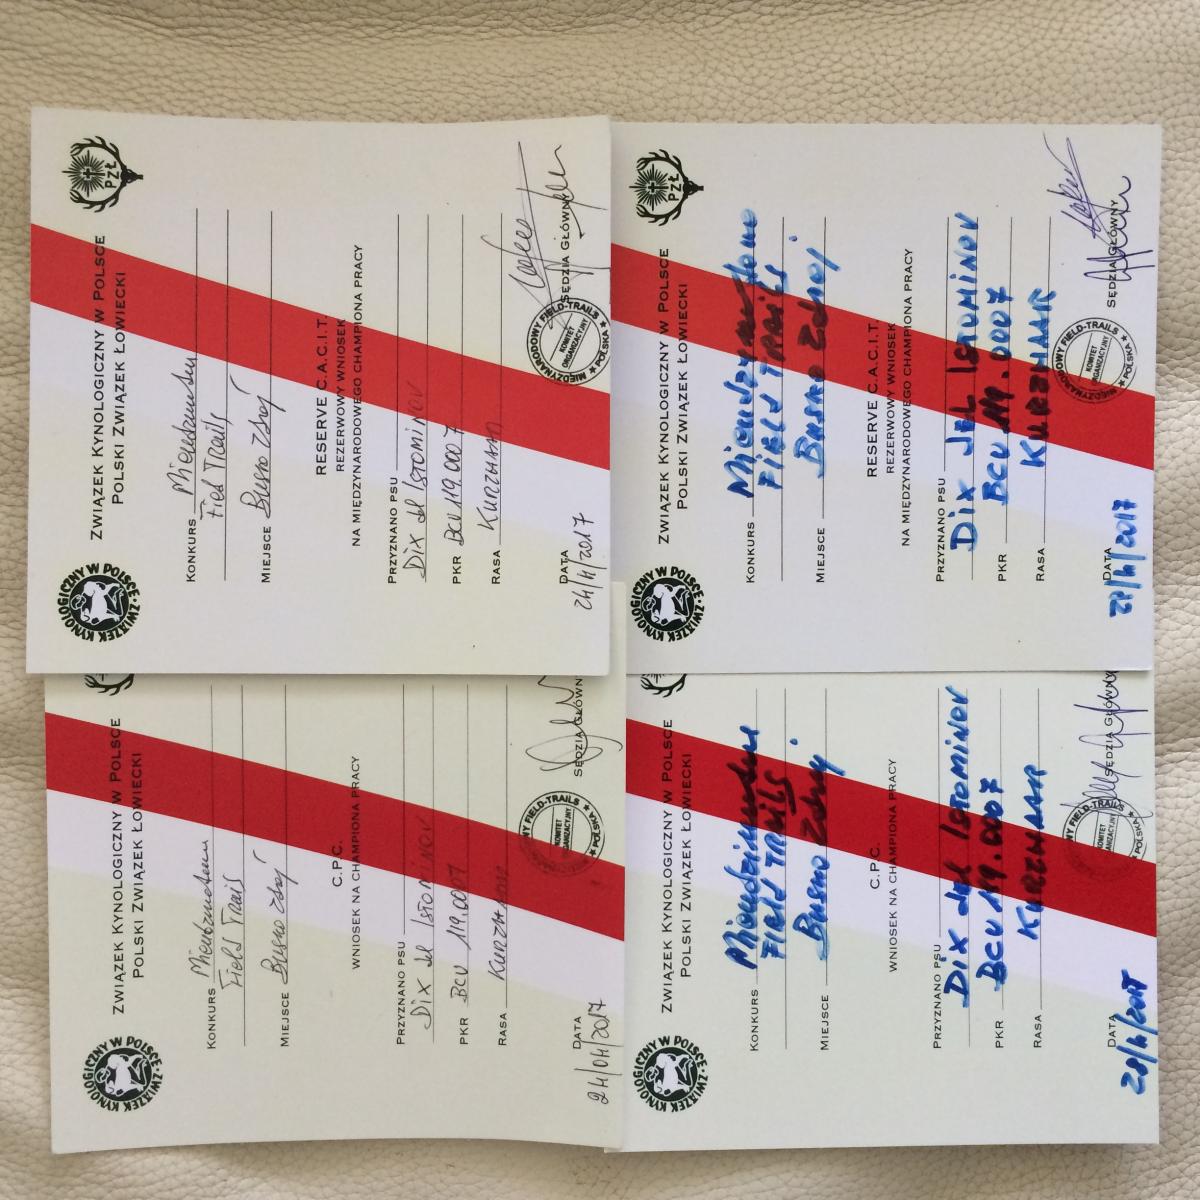 ZWIĄZEK KYNOLOGICZNY W POLSCE
POLSKI ZWIĄZEK ŁOWIECKI
PZŁ
ZWIĄZEK KYNOLOGICZNY W POLSCE
KONKURS
Field Trails
MIEJSCE Busko Zdrój
RESERVE C.A.C.I.T.
REZERWOWY WNIOSEK
NA MIĘDZYNARODOWEGO CHAMPIONA PRACY
PRZYZNANO PSU
Dix del Istominov
PKR BCU 119.0007
RASA KURZHAAR
DATA
24/4/2017
SĘDZIA GŁÓWNY
MIĘDZYNARODOWY FIELD-TRAILS
KOMITET
ORGANIZACYJNY
POLSKA
ZWIĄZEK KYNOLOGICZNY W POLSCE
POLSKI ZWIĄZEK ŁOWIECKI
PZŁ
ZWIĄZEK KYNOLOGICZNY W POLSCE
KONKURS
FIELD TRAILS
MIEJSCE Busko Zdroj
RESERVE C.A.C.I.T.
REZERWOWY WNIOSEK
NA MIĘDZYNARODOWEGO CHAMPIONA PRACY
PRZYZNANO PSU
Dix del Istominov
PKR BCU 119.0007
RASA KURZHAAR
DATA
SĘDZIA GŁÓWNY
MIĘDZYNARODOWY FIELD-TRAILS
KOMITET
ORGANIZACYJNY
POLSKA
ZWIĄZEK KYNOLOGICZNY W POLSCE
POLSKI ZWIĄZEK ŁOWIECKI
ZWIĄZEK KYNOLOGICZNY W POLSCE
KONKURS
Field Trails
MIEJSCE Busko Zdroj
C.P.C.
WNIOSEK NA CHAMPIONA PRACY
PRZYZNANO PSU
Dix del Istominov
PKR BCU 119.0007
RASA KURZHAAR
DATA
24/04/2017
SĘDZIA GŁÓWNY
FIELD-TRAILS
KOMITET
ORGANIZACYJNY
POLSKA
ZWIĄZEK KYNOLOGICZNY W POLSCE
POLSKI ZWIĄZEK ŁOWIECKI
ZWIĄZEK KYNOLOGICZNY W POLSCE
KONKURS
FIELD TRAILS
MIEJSCE Busko Zdroj
C.P.C.
WNIOSEK NA CHAMPIONA PRACY
PRZYZNANO PSU
Dix del Istominov
PKR BCU 119.0007
RASA KURZHAAR
DATA
28/4/2017
SĘDZIA GŁÓWNY
FIELD-TRAILS
KOMITET
ORGANIZACYJNY
POLSKA